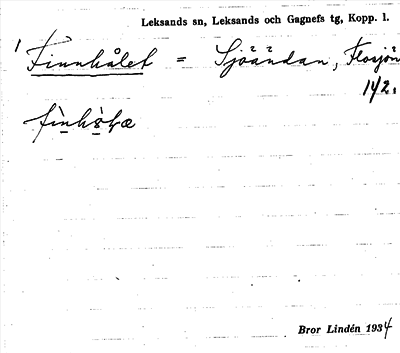 Leksands sn, Leksands och Gagnefs tg, Kopp. l.
1 Finnhålet = Sjöändan, Flosjön
142.
Bror Lindén 1934